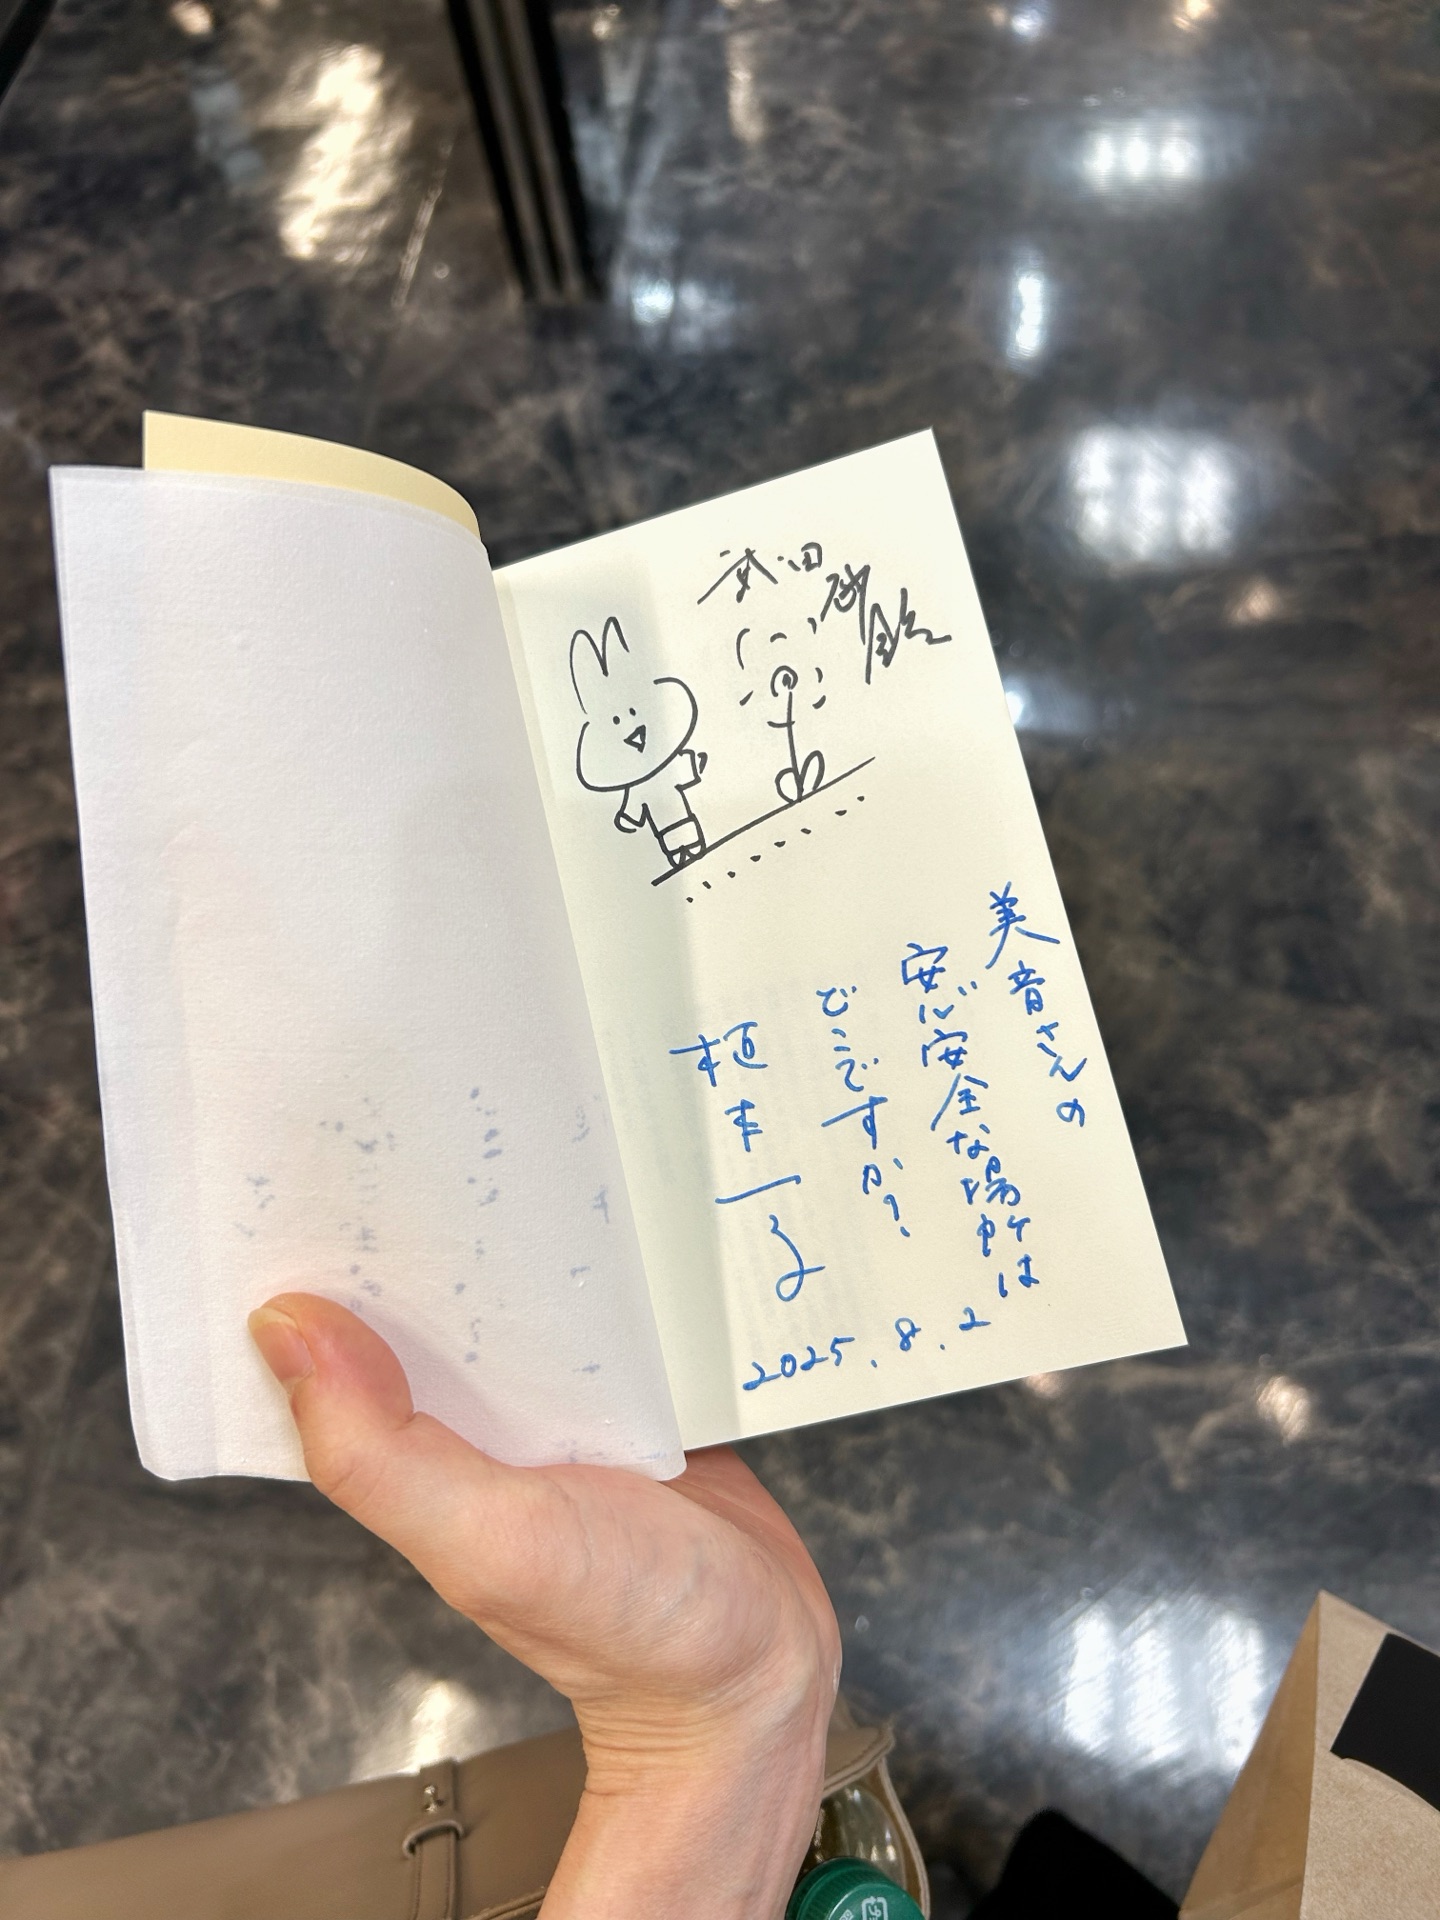 武田砂鉄
美音さんの
安心安全な場所は
どこですか?
植本一子
2025.8.2